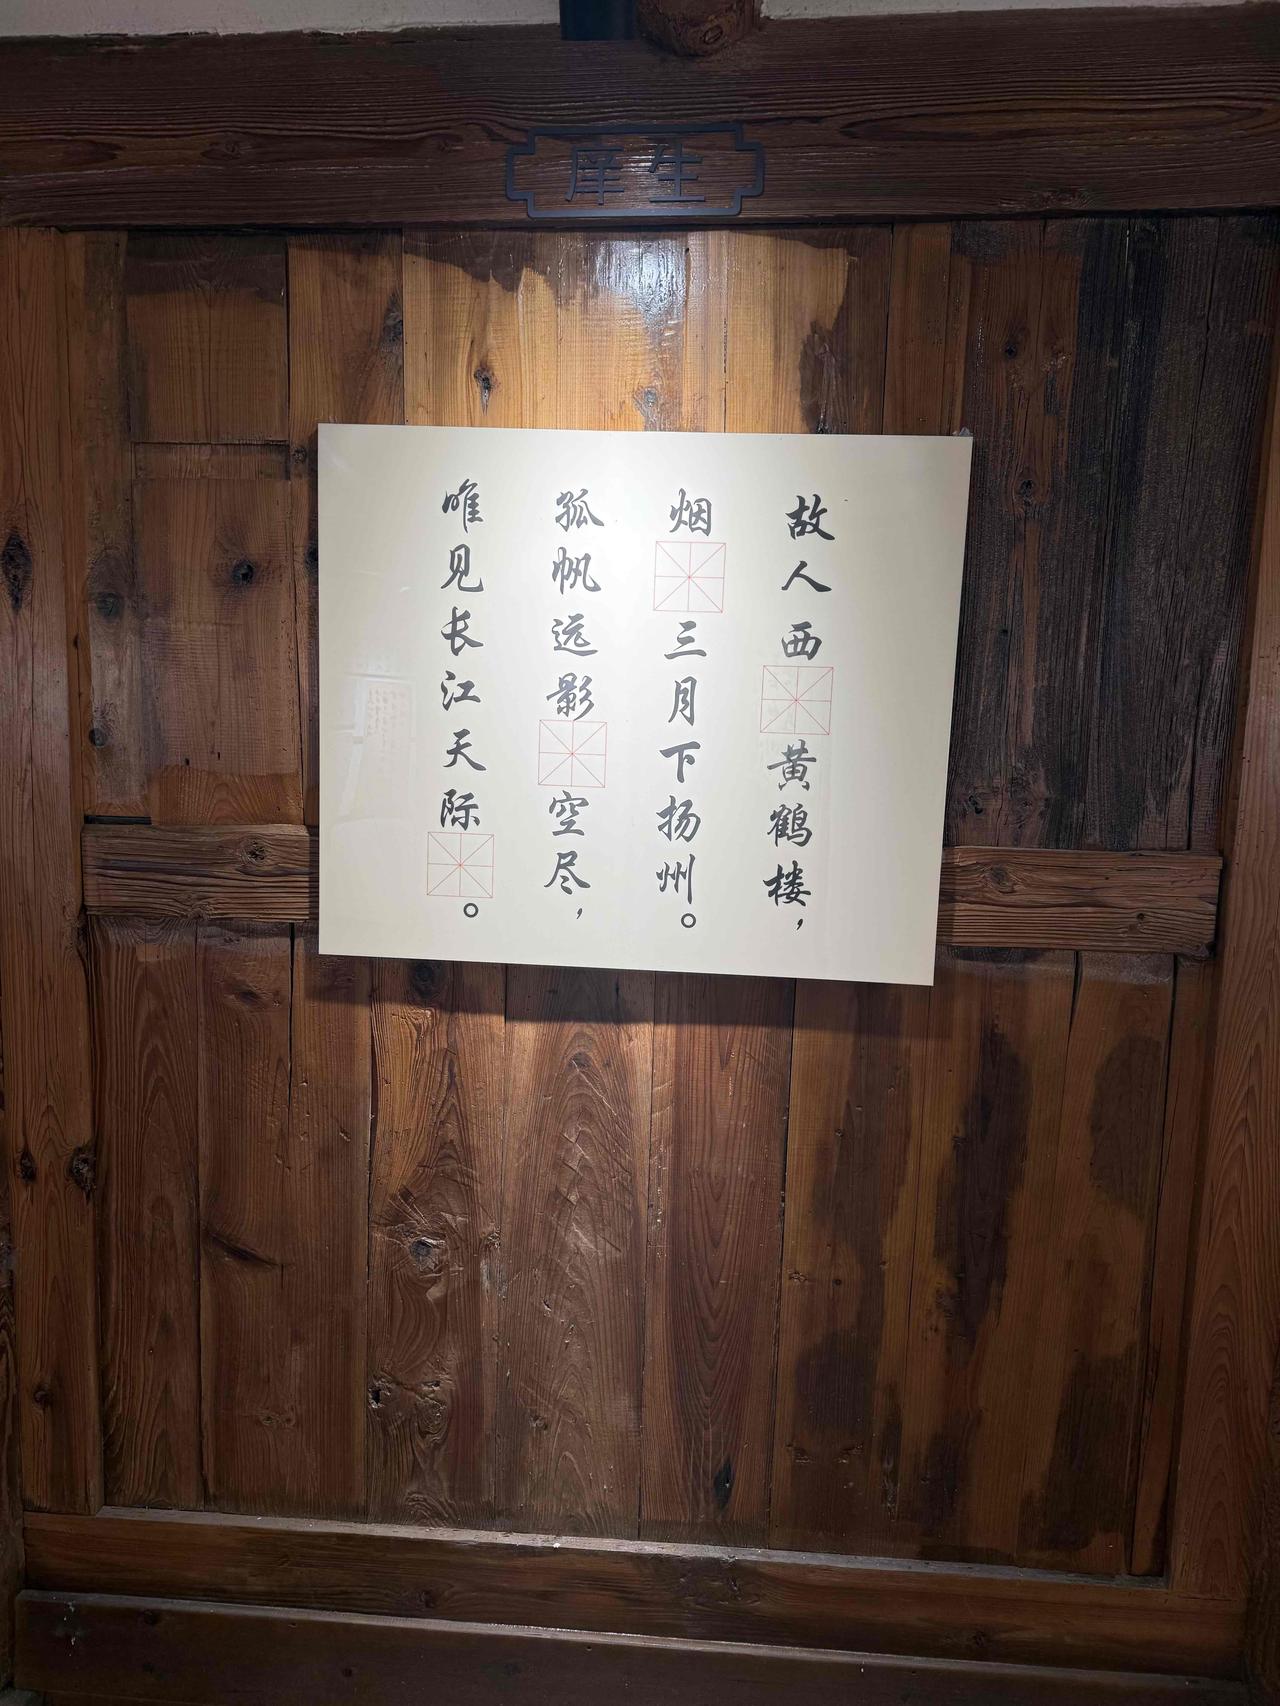 庠生
故人西 黄鹤楼，
烟 三月下扬州。
孤帆远影 空尽，
唯见长江天际 。